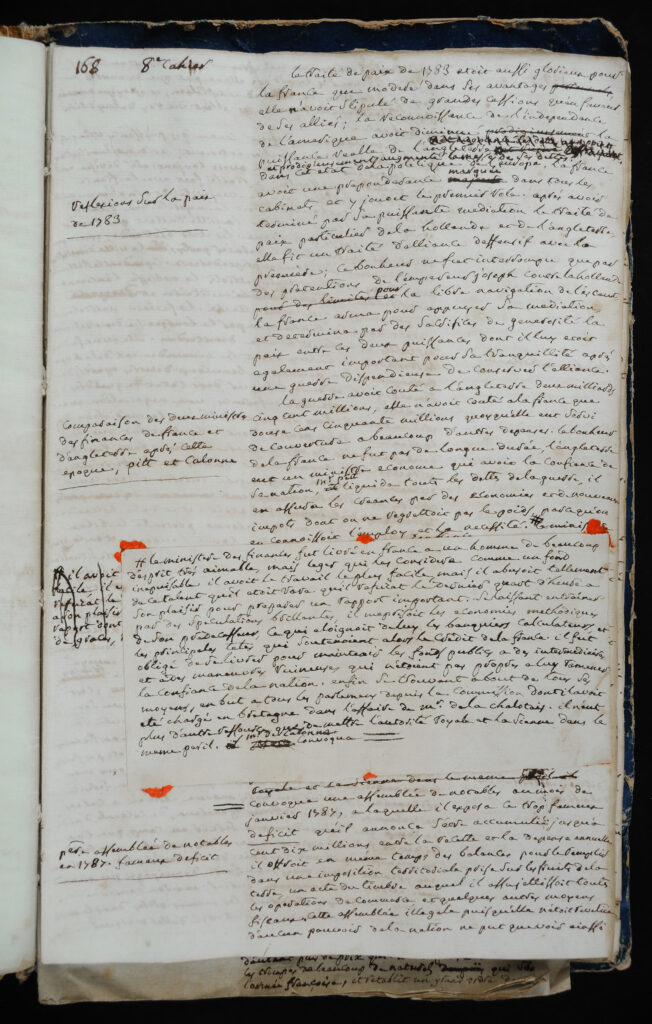 168 8e Cahier
le traité de paix de 1783 etoit aussi glorieux pour
la france que modéré dans ses avantages
elle n'avoit stipulé de grandes cessions qu'en faveur
de ses alliés; la reconnoissance de l'independance
de l'amerique avoit diminué prodigieusement la
puissance reelle de l'angleterre
et prodigieusement augmenté la masse de ses dettes.
dans cet etat de la politique de l'europe la france
avoit une preponderance marquée dans tous les
cabinets et y jouoit le premier role. après avoir
terminé par sa puissante mediation le traité de
paix particulier de la hollande et de l'angleterre
elle fit un traité d'alliance deffensif avec la
premiere; ce bonheur ne fut interrompu que par
des pretentions de l'empereur joseph contre la hollande
pour la libre navigation de l'escaut
la france arma pour appuyer sa mediation
et determina par des sacrifices de generosité la
paix entre les deux puissances dont il luy etoit
egalement important pour sa tranquillité après
une guerre dispendieuse de conserver l'alliance.
reflexions sur la paix
de 1783
la guerre avoit couté a l'angleterre deux milliards
cinq cent millions, elle n'avoit couté a la france que
douze cens cinquante millions quoyqu'elle eut servi
de couverture a beaucoup d'autres depenses. le bonheur
de la france ne fut pas de longue durée, l'angleterre
eut un ministre econome qui avoit la confiance de
sa nation, mr pitt liquida toute les dettes de la guerre, il
en assura les creances par des economies et de nouveaux
impots dont on ne regrettoit pas le poids, parcequ'on
en connoissoit l'employ et la necessité. le ministere
Comparaison des deux ministres
des finances de france et
d'angleterre après cette
epoque, pitt et Calonne
# le ministere des finances fut livré en france a un homme de beaucoup
d'esprit très aimable, mais leger qui les considera comme un fond
inepuisable il avoit le travail le plus facile, mais il abusoit tellement
de ce talent qu'il etoit rare qu'il refusat le dernier quart d'heure a
son plaisir pour preparer un rapport important. se laissant entrainer
par des speculations brillantes, il meprisoit les economies methodiques
de son predecesseur, ce qui eloignoit de luy les banquiers calculateurs et
les principales tetes qui soutenoient alors le credit de la france. il fut
obligé de se livrer pour maintenir les fonds publics a des intermediaires
et a des manoeuvres ruineuses qui n'etoient pas propres a luy ramener
la confiance de la nation. enfin se trouvant a bout de tous ses
moyens, en but a tous les parlemens depuis la commission dont il avoit
eté chargé en bretagne dans l'affaire de mr. de la chalotais. il n'eut
plus d'autre ressource que de mettre l'autorité royale et la sienne dans le
meme peril. mr de Calonne convoqua
# il avoit
royale et la sienne dans le meme peril
convoqua une assemblée de notables au mois de
janvier 1787, a laquelle il exposa ce trop fameux
deficit qu'il annonça s'etre accumulé jusqu'a
cent dix millions entre la recette et la depense annuelle
il offroit en meme temps des balances pour le remplir
dans une imposition territoriale prise sur les fruits de la
terre, un acte du timbre auquel il assujettissoit toute
les operations de commerce, et quelques autres moyens
fiscaux. cette assemblée illegale puisqu'elle n'etoit revetue
d'aucun pouvoir de la nation ne put que voir aussi
pere assemblée de notables
en 1787. fameux deficit
les troupes de beaucoup de
l'armée françoise, et retablit un grand ordre